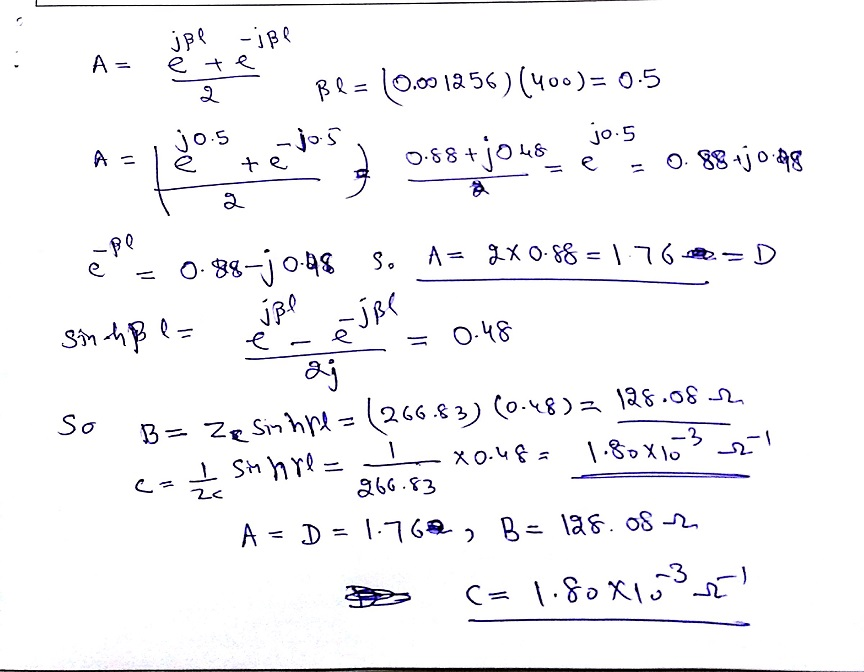 A = (e^{jβl} + e^{-jβl}) / 2
βl = (0.001256)(400) = 0.5
A = (e^{j0.5} + e^{-j0.5}) / 2
(0.88 + j0.48) / 2 = e^{j0.5} = 0.88 + j0.48
e^{-βl} = 0.88 - j0.48 So A = 2 x 0.88 = 1.76 = D
Sinhβl = (e^{jβl} - e^{-jβl}) / 2j = 0.48
So B = Zc Sinhγl = (266.83) (0.48) = 128.08 Ω
C = 1/Zc Sinhγl = 1/266.83 x 0.48 = 1.80 x 10^{-3} Ω^{-1}
A = D = 1.76, B = 128.08 Ω
C = 1.80 x 10^{-3} Ω^{-1}